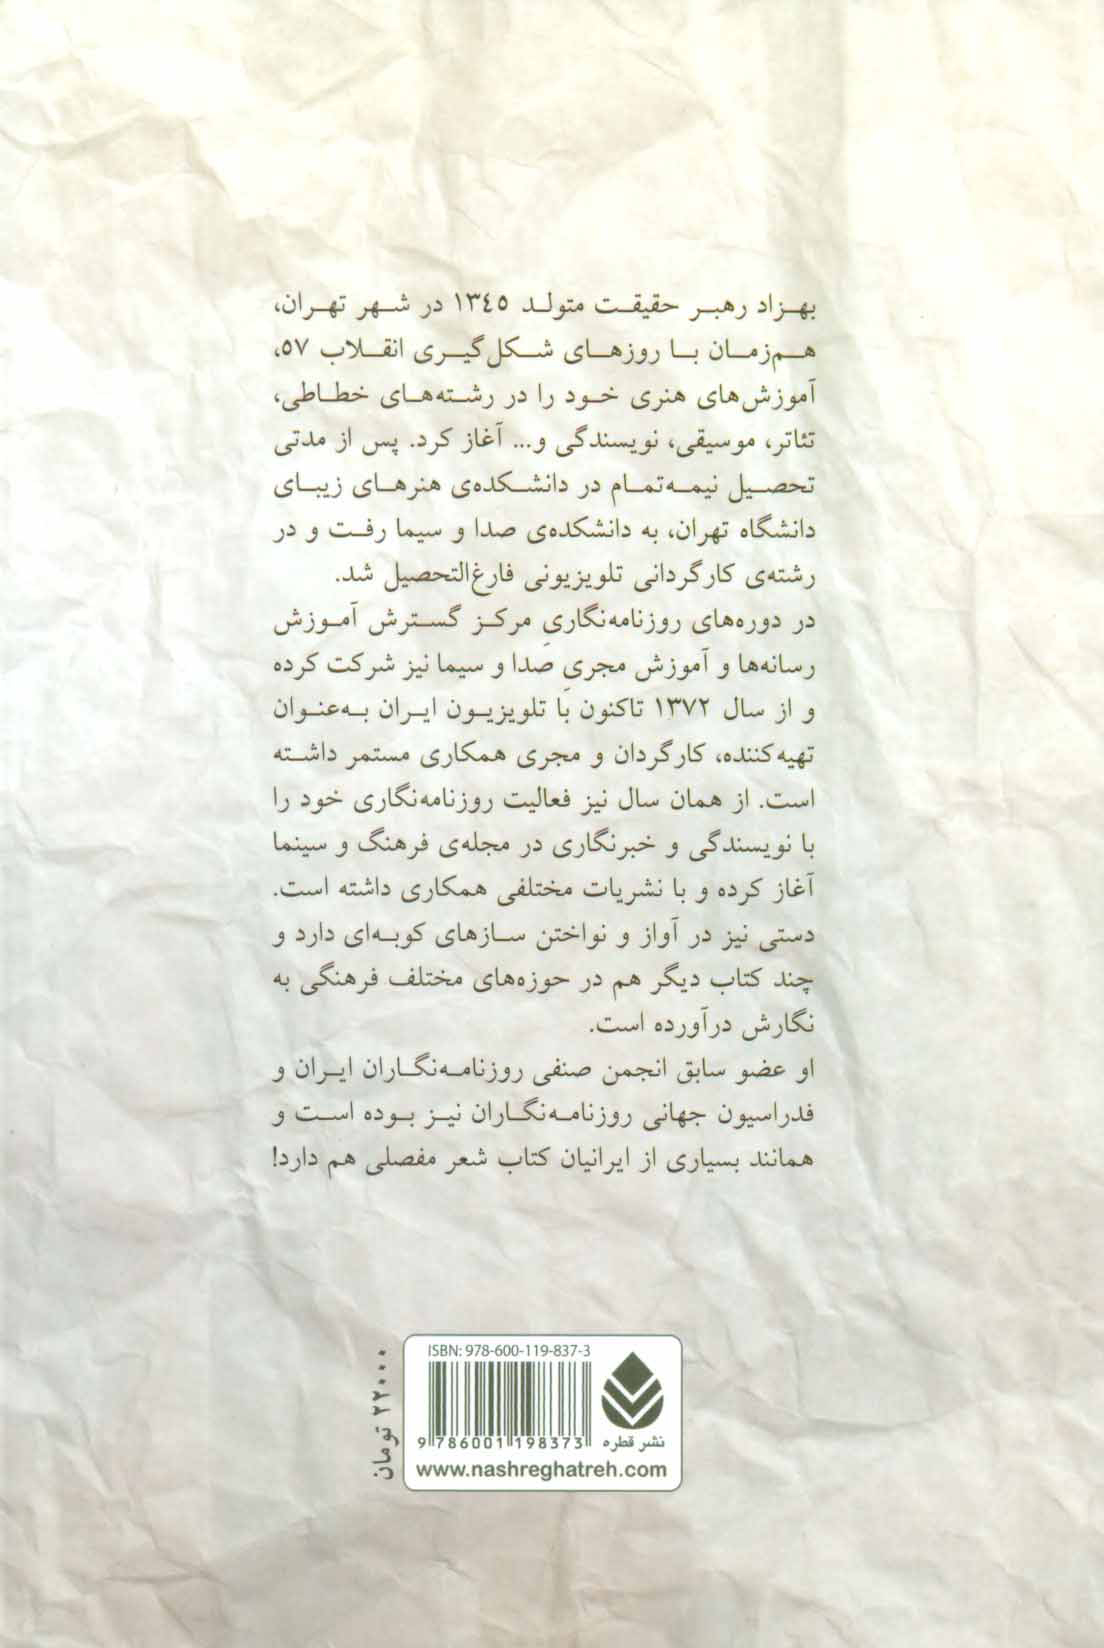 بهزاد رهبر حقیقت متولد ۱۳٤٥ در شهر تهران،
هم‌زمان با روزهای شکل‌گیری انقلاب ٥٧،
آموزش‌های هنری خود را در رشته‌های خطاطی،
تئاتر، موسیقی، نویسندگی و... آغاز کرد. پس از مدتی
تحصیل نیمه‌تمام در دانشکده‌ی هنرهای زیبای
دانشگاه تهران، به دانشکده‌ی صدا و سیما رفت و در
رشته‌ی کارگردانی تلویزیونی فارغ‌التحصیل شد.
در دوره‌های روزنامه‌نگاریِ مرکز گسترش آموزش
رسانه‌ها و آموزش مجریِ صدا و سیما نیز شرکت کرده
و از سال ۱۳۷۲ تاکنون با تلویزیون ایران به‌عنوان
تهیه‌کننده، کارگردان و مجری همکاری مستمر داشته
است. از همان سال نیز فعالیت روزنامه‌نگاری خود را
با نویسندگی و خبرنگاری در مجله‌ی فرهنگ و سینما
آغاز کرده و با نشریات مختلفی همکاری داشته است.
دستی نیز در آواز و نواختن سازهای کوبه‌ای دارد و
چند کتاب دیگر هم در حوزه‌های مختلف فرهنگی به
نگارش درآورده است.
او عضو سابق انجمن صنفی روزنامه‌نگاران ایران و
فدراسیون جهانی روزنامه‌نگاران نیز بوده است و
همانند بسیاری از ایرانیان کتاب شعر مفصلی هم دارد!
ISBN: 978-600-119-837-3
9 786001 198373
نشر قطره
www.nashreghatreh.com
۲۲۰۰۰ تومان